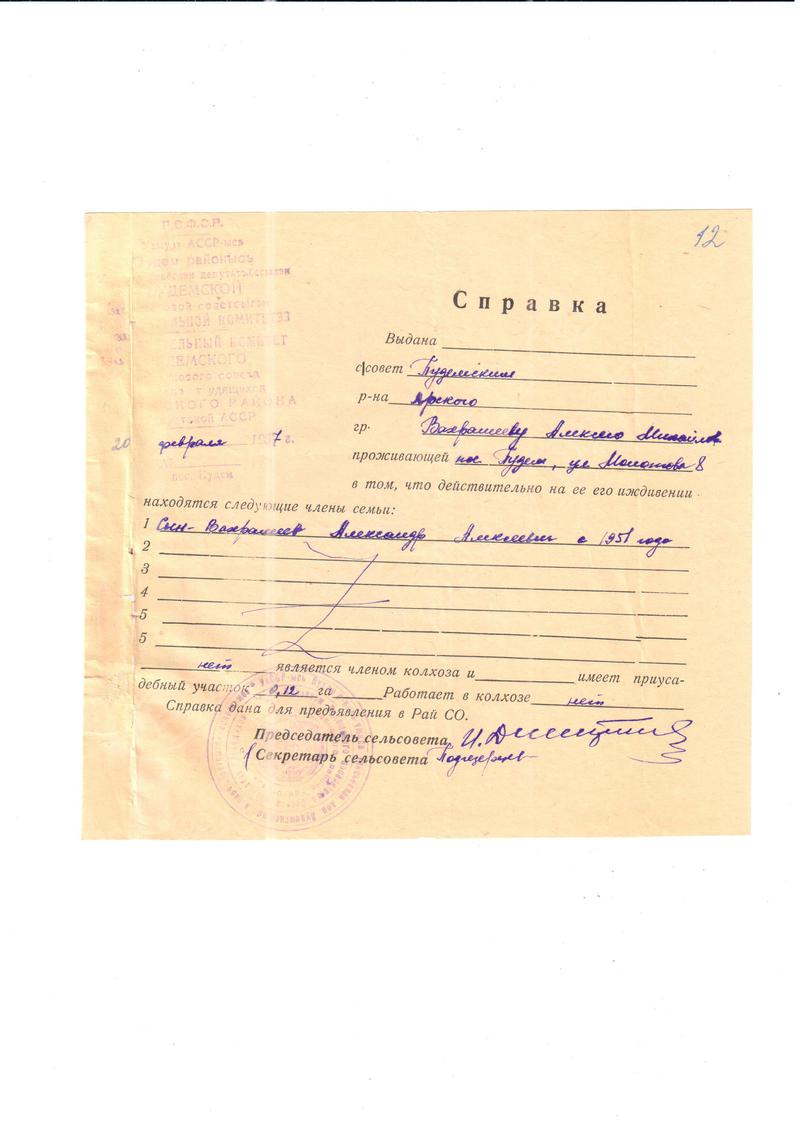 Р.С.Ф.С.Р.
АССР-мсь
районысь
ДЕМСКОЙ
КОМИТЕТЭЗ
КОМИТЕТ
ДЕМСКОГО
совета
РАЙОНА
АССР
20 февраля 1957 г.
пос. Пудем
12
Справка
Выдана
с/совет Пудемским
р-на Ярского
гр. Вахрашеву Алексею Михайлов
проживающей пос Пудем, ул Молотова 8
в том, что действительно на ее его иждивении
находятся следующие члены семьи:
1 Сын- Вахрашев Александр Алексеевич с 1951 года
2
3
4
5
5
нет является членом колхоза и имеет приуса-
дебный участок 0,12 га Работает в колхозе нет
Справка дана для предъявления в Рай СО.
Председатель сельсовета
Секретарь сельсовета